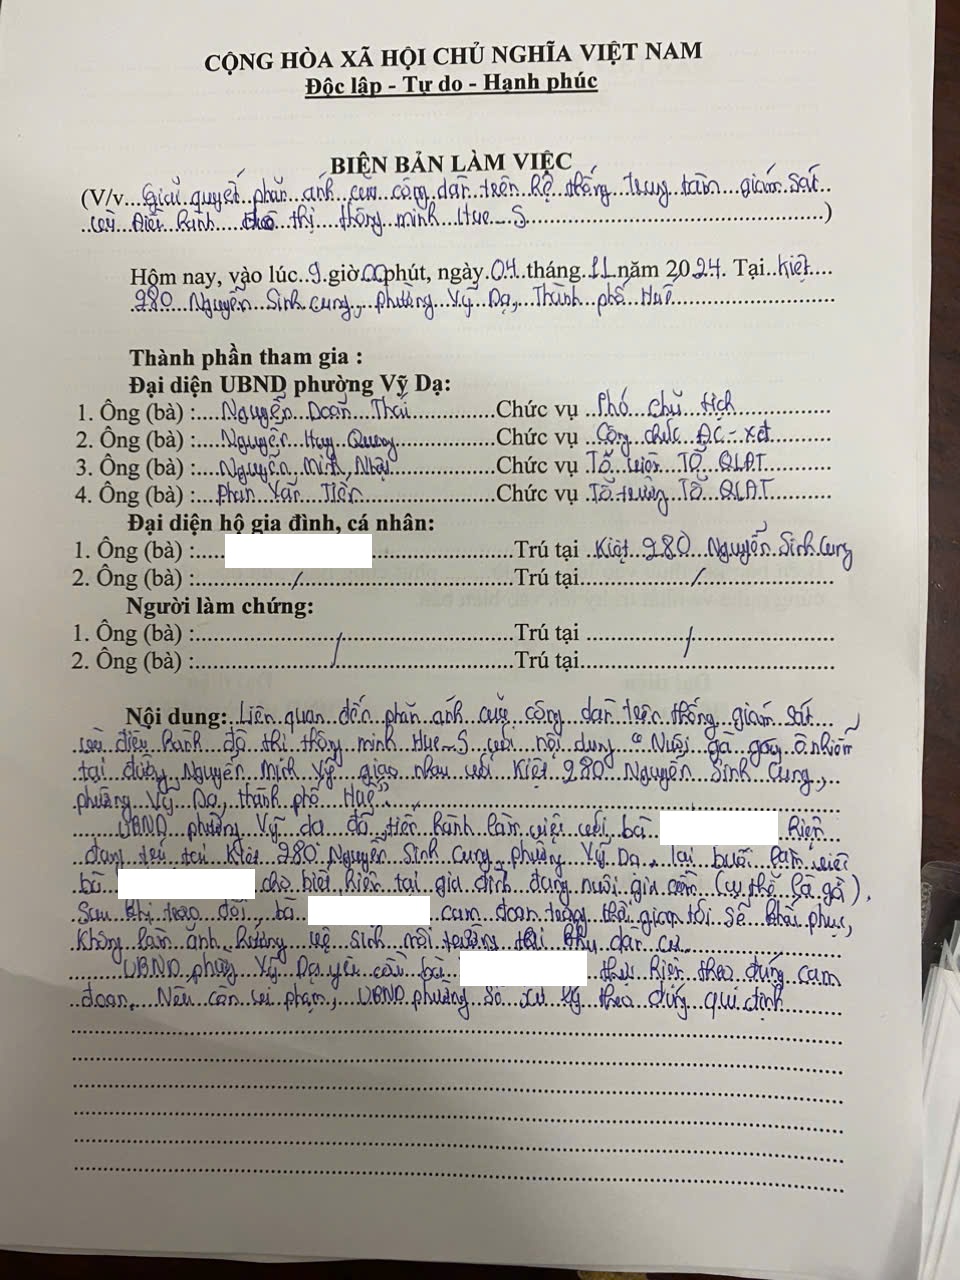 CỘNG HÒA XÃ HỘI CHỦ NGHĨA VIỆT NAM
Độc lập - Tự do - Hạnh phúc
BIÊN BẢN LÀM VIỆC
(V/v...Giải quyết phản ánh của công dân trên hệ thống trung tâm giám sát
và điều hành đô thị thông minh Hue-S...)
Hôm nay, vào lúc 9 giờ 00 phút, ngày 04 tháng 11 năm 2024. Tại Kiệt
280 Nguyễn Sinh Cung, phường Vỹ Dạ, Thành phố Huế
Thành phần tham gia :
Đại diện UBND phường Vỹ Dạ:
1. Ông (bà) : Nguyễn Doãn Thái Chức vụ Phó chủ tịch
2. Ông (bà) : Nguyễn Huy Quang Chức vụ Công chức ĐC-XD
3. Ông (bà) : Nguyễn Minh Nhật Chức vụ Tổ viên TỔ QLĐT
4. Ông (bà) : Phan Văn Tiến Chức vụ Tổ trưởng Tổ QLĐT
Đại diện hộ gia đình, cá nhân:
1. Ông (bà) : Trú tại Kiệt 280 Nguyễn Sinh Cung
2. Ông (bà) : / Trú tại /
Người làm chứng:
1. Ông (bà) : / Trú tại /
2. Ông (bà) : Trú tại
Nội dung: Liên quan đến phản ánh của công dân trên thống giám sát
và điều hành đô thị thông minh Hue-S với nội dung "Nuôi gà gây ô nhiễm
tại đường Nguyễn Minh Vỹ giao nhau với Kiệt 280 Nguyễn Sinh Cung,
phường Vỹ Dạ, thành phố Huế"
UBND phường Vỹ dạ đã tiến hành làm việc với bà hiện
đang trú tại Kiệt 280 Nguyễn Sinh Cung, phường Vỹ Dạ, tại buổi làm việc
bà cho biết hiện tại gia đình đang nuôi gia cầm (cụ thể là gà).
Sau khi trao đổi, bà cam đoan trong thời gian tới sẽ khắc phục,
không làm ảnh hưởng vệ sinh môi trường khu dân cư
UBND phường Vỹ Dạ yêu cầu bà thực hiện theo đúng cam
đoan, Nếu còn vi phạm, UBND phường sẽ xử lý theo đúng qui định